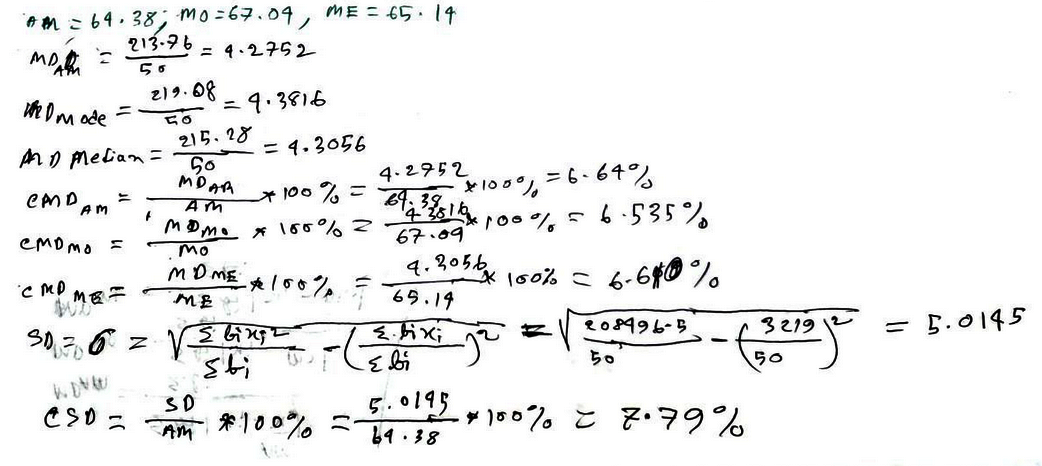 AM = 64.38; MO=67.04, ME = 65.14
MD AM = 213.76/50 = 4.2752
MD mode = 219.08/50 = 4.3816
MD Median = 215.28/50 = 4.3056
CMD AM = MD AM/AM * 100% = 4.2752/64.38 * 100% = 6.64%
CMD MO = MD MO/MO * 100% = 4.3816/67.04 * 100% = 6.535%
CMD ME = MD ME/ME * 100% = 4.3056/65.14 * 100% = 6.610%
SD = σ = √(Σfixi²/Σfi - (Σfixi/Σfi)²) = √(208496.5/50 - (3219/50)²) = 5.0145
CSD = SD/AM * 100% = 5.0145/64.38 * 100% = 7.79%